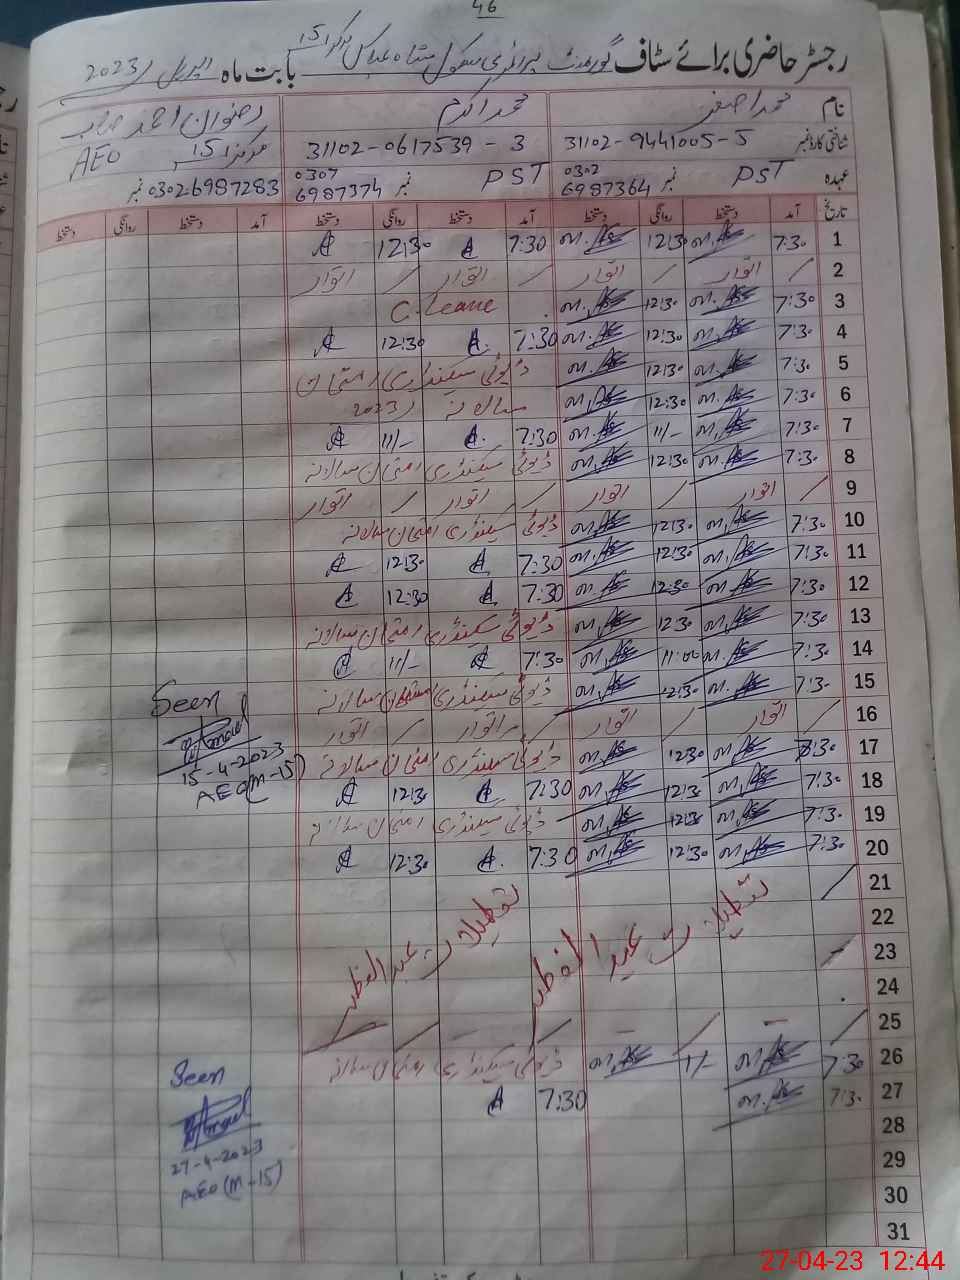 46
رجسٹر حاضری برائے سٹاف گورنمنٹ پرائمری سکول شاہ عباس مرکز 15 بابت ماہ اپریل 2023ء
نام محمد اصغر محمد اکرم رضوان احمد صاحب
شناختی کارڈ نمبر 31102-9441005-5 31102-0617539-3 مرکز 15 AEO
عہدہ PST نمبر 0302 6987364 PST نمبر 0307 6987374 نمبر 0302-6987283
تاریخ آمد دستخط روانگی دستخط آمد دستخط روانگی دستخط آمد دستخط روانگی دستخط
1 7:30 12:30 7:30 12:30
2 / اتوار / اتوار / اتوار / اتوار
3 7:30 12:30 C. Leave
4 7:30 12:30 7:30 12:30
5 7:30 12:30 ڈیوٹی سیکنڈری امتحان
6 7:30 12:30 سالانہ 2023ء
7 7:30 11/- 7:30 11/-
8 7:30 12:30 ڈیوٹی سیکنڈری امتحان سالانہ
9 / اتوار / اتوار / اتوار / اتوار
10 7:30 12:30 ڈیوٹی سیکنڈری امتحان سالانہ
11 7:30 12:30 7:30 12:30
12 7:30 12:30 7:30 12:30
13 7:30 12:30 ڈیوٹی سیکنڈری امتحان سالانہ
14 7:30 11:00 7:30 11/-
15 7:30 12:30 ڈیوٹی سیکنڈری امتحان سالانہ
Seen
16 / اتوار / اتوار / اتوار / اتوار
17 7:30 12:30 ڈیوٹی سیکنڈری امتحان سالانہ
15-4-2023
18 7:30 12:30 7:30 12:30
AEO(M-15)
19 7:30 12:30 ڈیوٹی سیکنڈری امتحان سالانہ
20 7:30 12:30 7:30 12:30
21
22
تعطیلات عید الفطر تعطیلات عید الفطر
23
24
25
26 7:30 1/- ڈیوٹی سیکنڈری امتحان سالانہ
Seen
27 7:30 7:30
28
27-4-2023
29
AEO(M-15)
30
31
27-04-23 12:44